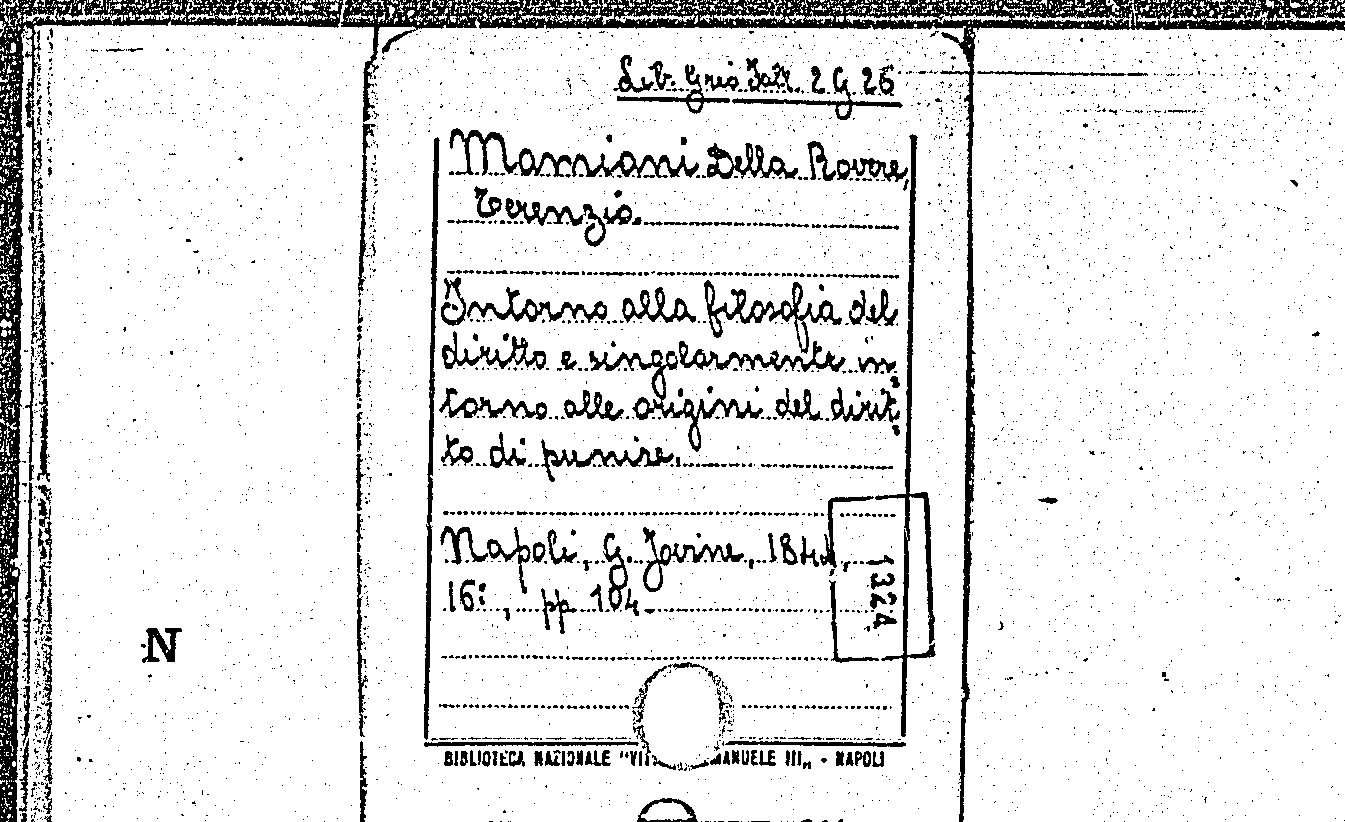 Lib. Grio Salv. 2 G 26
Mamiani Della Rovere,
Terenzio.
Intorno alla filosofia del
diritto e singolarmente in=
torno alle origini del dirit=
to di punire.
Napoli, G. Jovine, 1844,
16:, pp 104.
1324
N
BIBLIOTECA NAZIONALE "VITT MANUELE III„ - NAPOLI